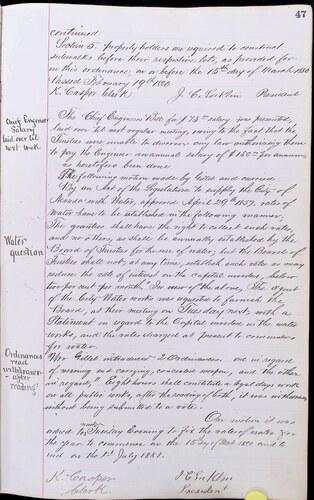 47
continued
Section 5. property holders are required to construct
sidewalks before their respective lots, as provided for
in this ordinance, on or before the 15th day of March 1880
Passed February 19th 1880.
K. Casper Clerk J. C. Locklin President
Chief Engineer
Salary
laid over til
next meeting
The Chief Engineers Bill for $75 salary was presented,
laid over til next regular meeting, owing to the fact that the
Trustees were unable to discover any law authorising them
to pay the Engineer an annual salary of $150 per annum,
as heretofore been done
The following motion made by and carried
Water
question
By an Act of the Legislature to supply the City of
Nevada with Water, approved April 29th 1857, rates of
Water have to be established in the following manner:
The grantees shall have the right to collect such rates,
and no others, as shall be annually established by the
Board of Trustees for the use of water, but the Board of
Trustees shall not, at any time, establish such rates as may
reduce the rate of interest on the capital invested, below
two per cent per month. In view of the above, The agent
of the City Water works was requested to furnish the
Board, at their meeting on Tuesday next, with a
Statement in regard to the Capital invested in the water
works, and the rates charged at present to consumers
for water.
Ordinances
read
withdrawn
after
reading
introduced 2 Ordinances. one in regard
of wearing and carrying, concealed weapons, and the other
in regard, Eight hours shall constitute a legal days work
on all public works, after the reading of both, it was withdrawn
without being submitted to a vote.
On motion it was
until Tuesday Evening to fix the rates of water for
the year to commence on the 15 day of 1880 and to
end on the 1st July 1881.
K. Casper J. C. Locklin
Clerk President